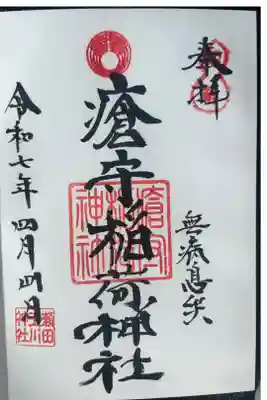 奉拝
無病息災
瘡守稲荷神社
瘡守稲荷神社
令和七年四月四日